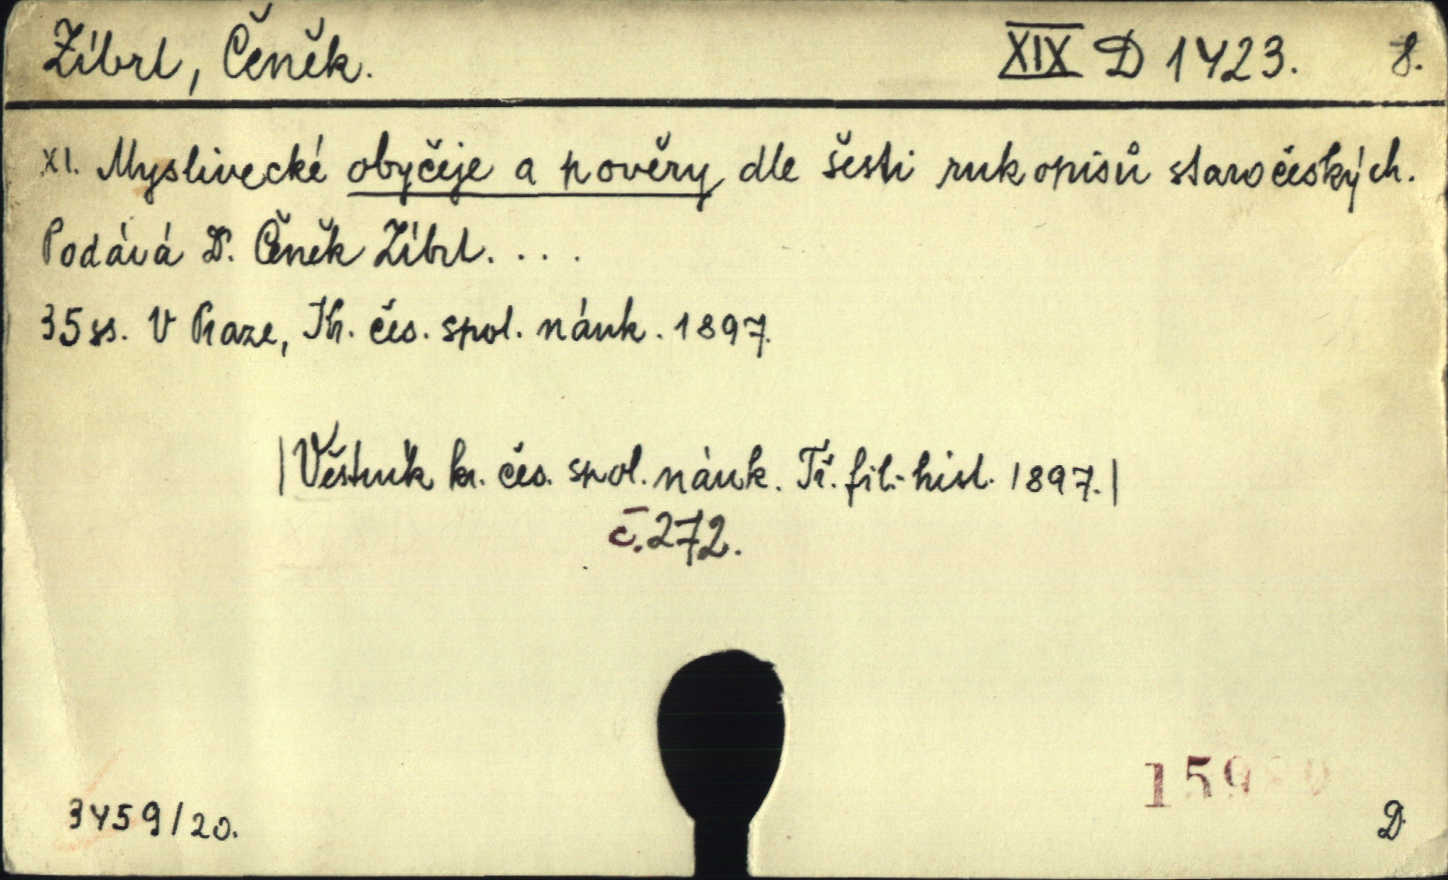 Zíbrt, Čeněk. XIX D 1423. 8.
XI. Myslivecké obyčeje a pověry dle šesti rukopisů staročeských.
Podává Dr. Čeněk Zíbrt. . . .
35 ss. V Praze, Kr. čes. spol. náuk. 1897.
|Věstník kr. čes. spol. náuk. Tř. fil.-hist. 1897.|
č. 272.
159
3459/20. D.